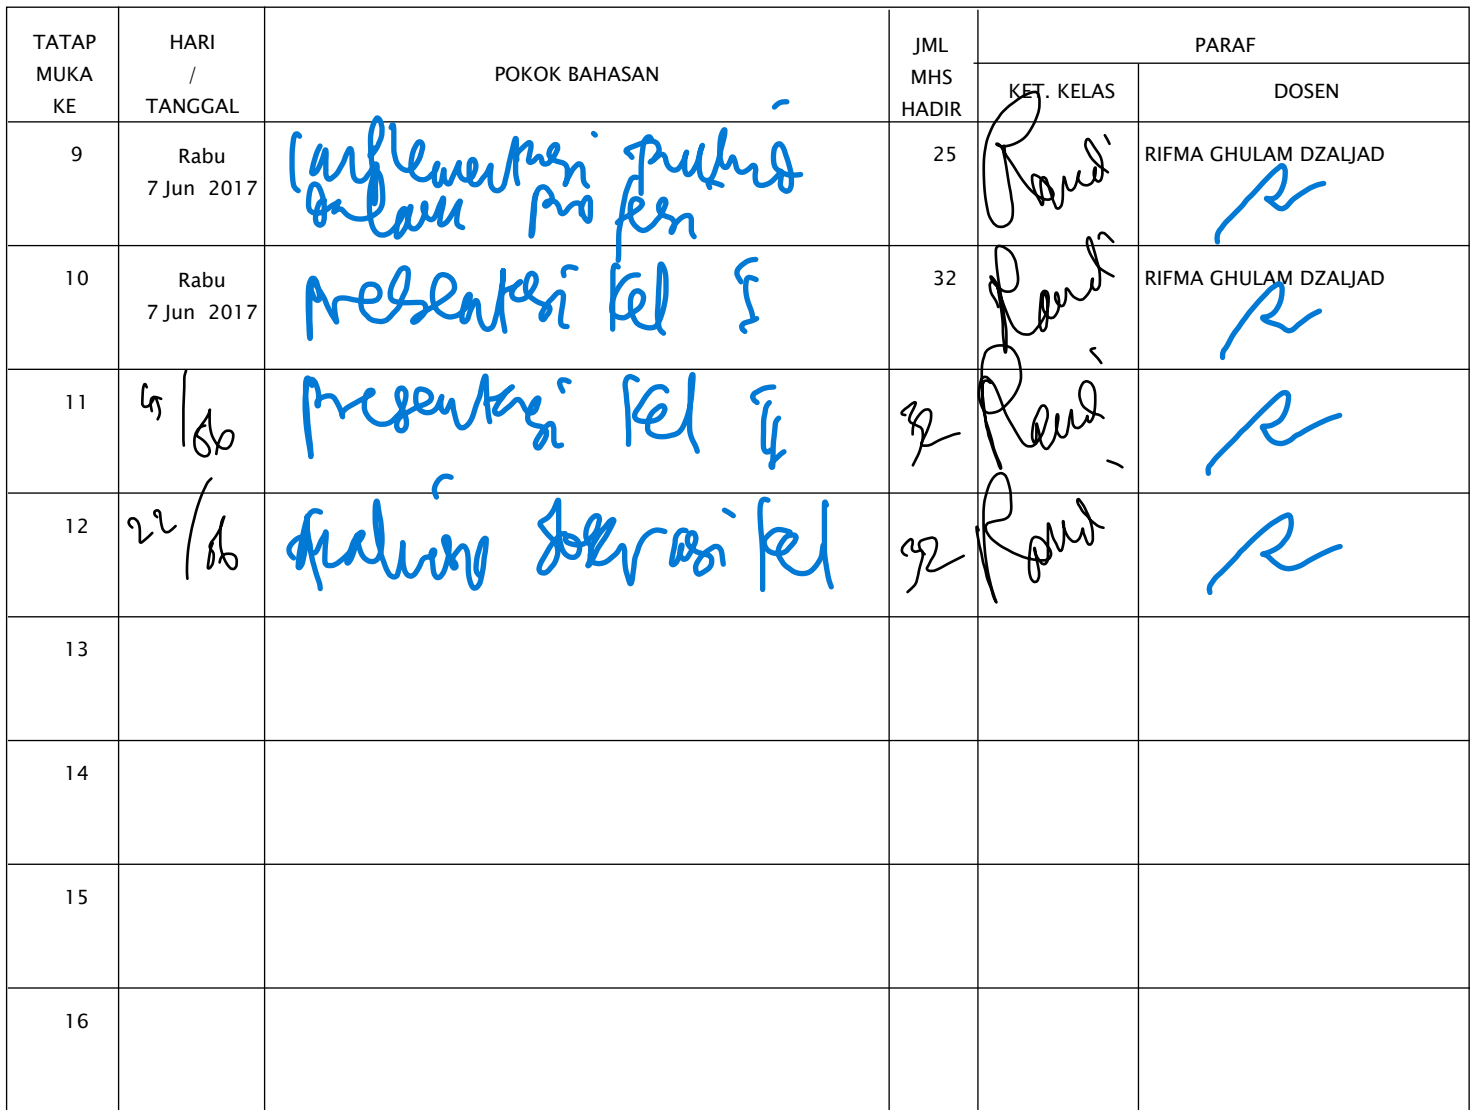 TATAP MUKA KE
HARI / TANGGAL
POKOK BAHASAN
JML MHS HADIR
PARAF
KET. KELAS
DOSEN
9
Rabu
7 Jun 2017
dalam profesi
25
Randi
RIFMA GHULAM DZALJAD
10
Rabu
7 Jun 2017
presentasi kel I
32
Randi
RIFMA GHULAM DZALJAD
11
/06
presentasi kel II
32
Randi
12
22/06
kel
32
Randi
13
14
15
16